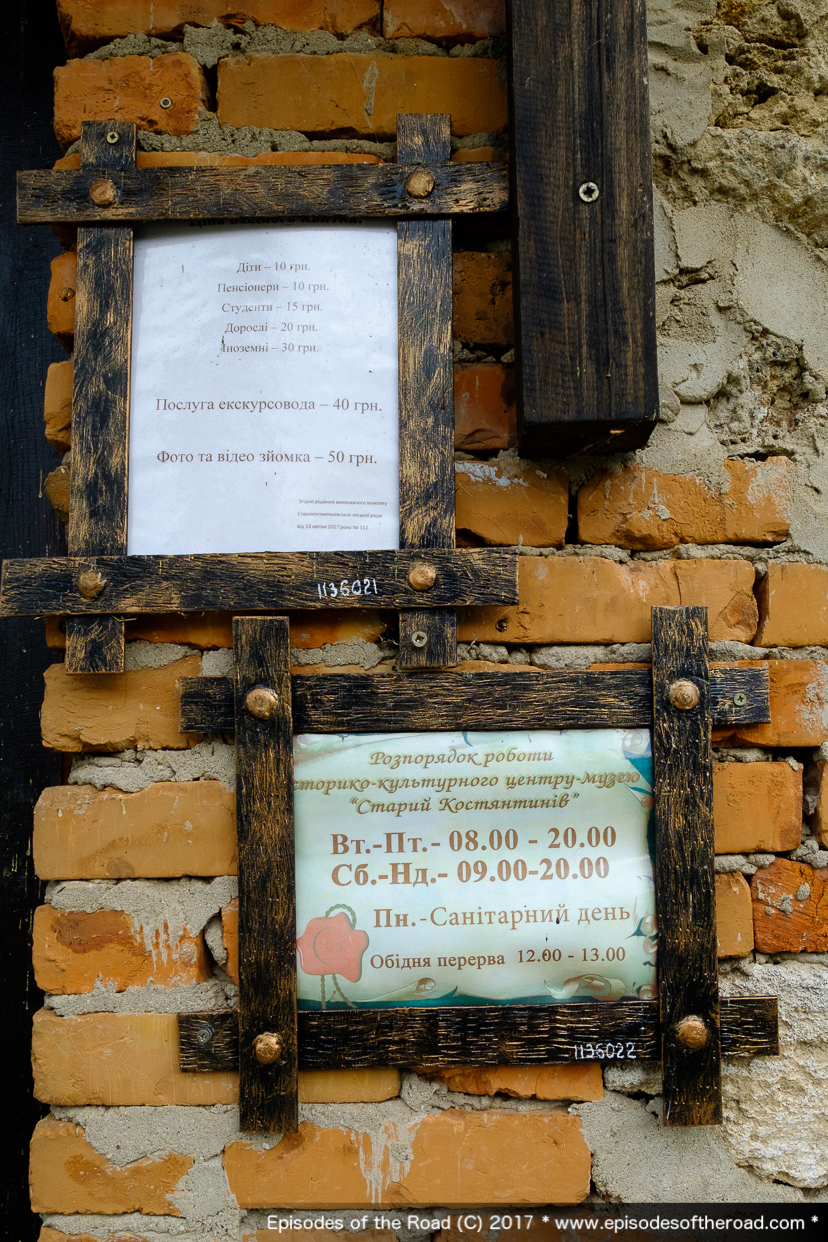 Діти – 10 грн.
Пенсіонери – 10 грн.
Студенти – 15 грн.
Дорослі – 20 грн.
Іноземні – 30 грн.
Послуга екскурсовода – 40 грн.
Фото та відео зйомка – 50 грн.
Згідно рішення виконавчого комітету
Старокостянтинівської міської ради
від 13 квітня 2017 року № 112
1136021
Розпорядок роботи
сторико-культурного центру-музею
"Старий Костянтинів"
Вт.-Пт.- 08.00 - 20.00
Сб.-Нд.- 09.00-20.00
Пн.-Санітарний день
Обідня перерва 12.00 - 13.00
1136022
Episodes of the Road (C) 2017 * www.episodesoftheroad.com *